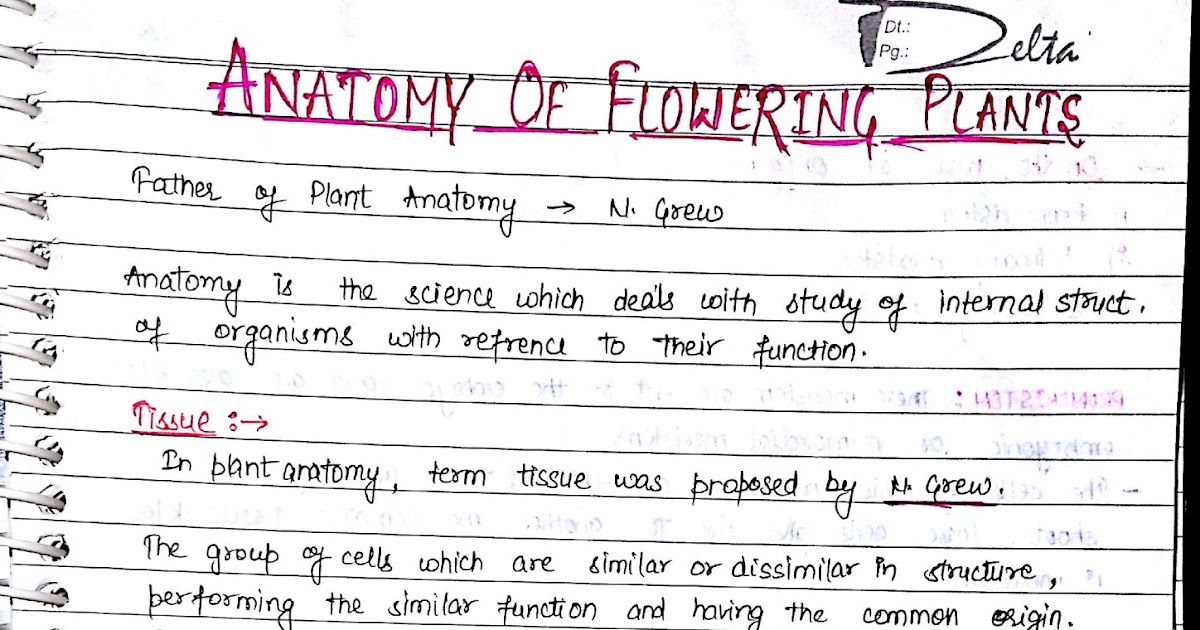 Dt.:
Pg.:
Delta
ANATOMY OF FLOWERING PLANTS
Father of Plant Anatomy → N. Grew
Anatomy is the science which deals with study of internal struct.
of organisms with refrence to their function.
Tissue :→
In plant anatomy, term tissue was proposed by N. Grew.
The group of cells which are similar or dissimilar in structure,
performing the similar function and having the common origin.